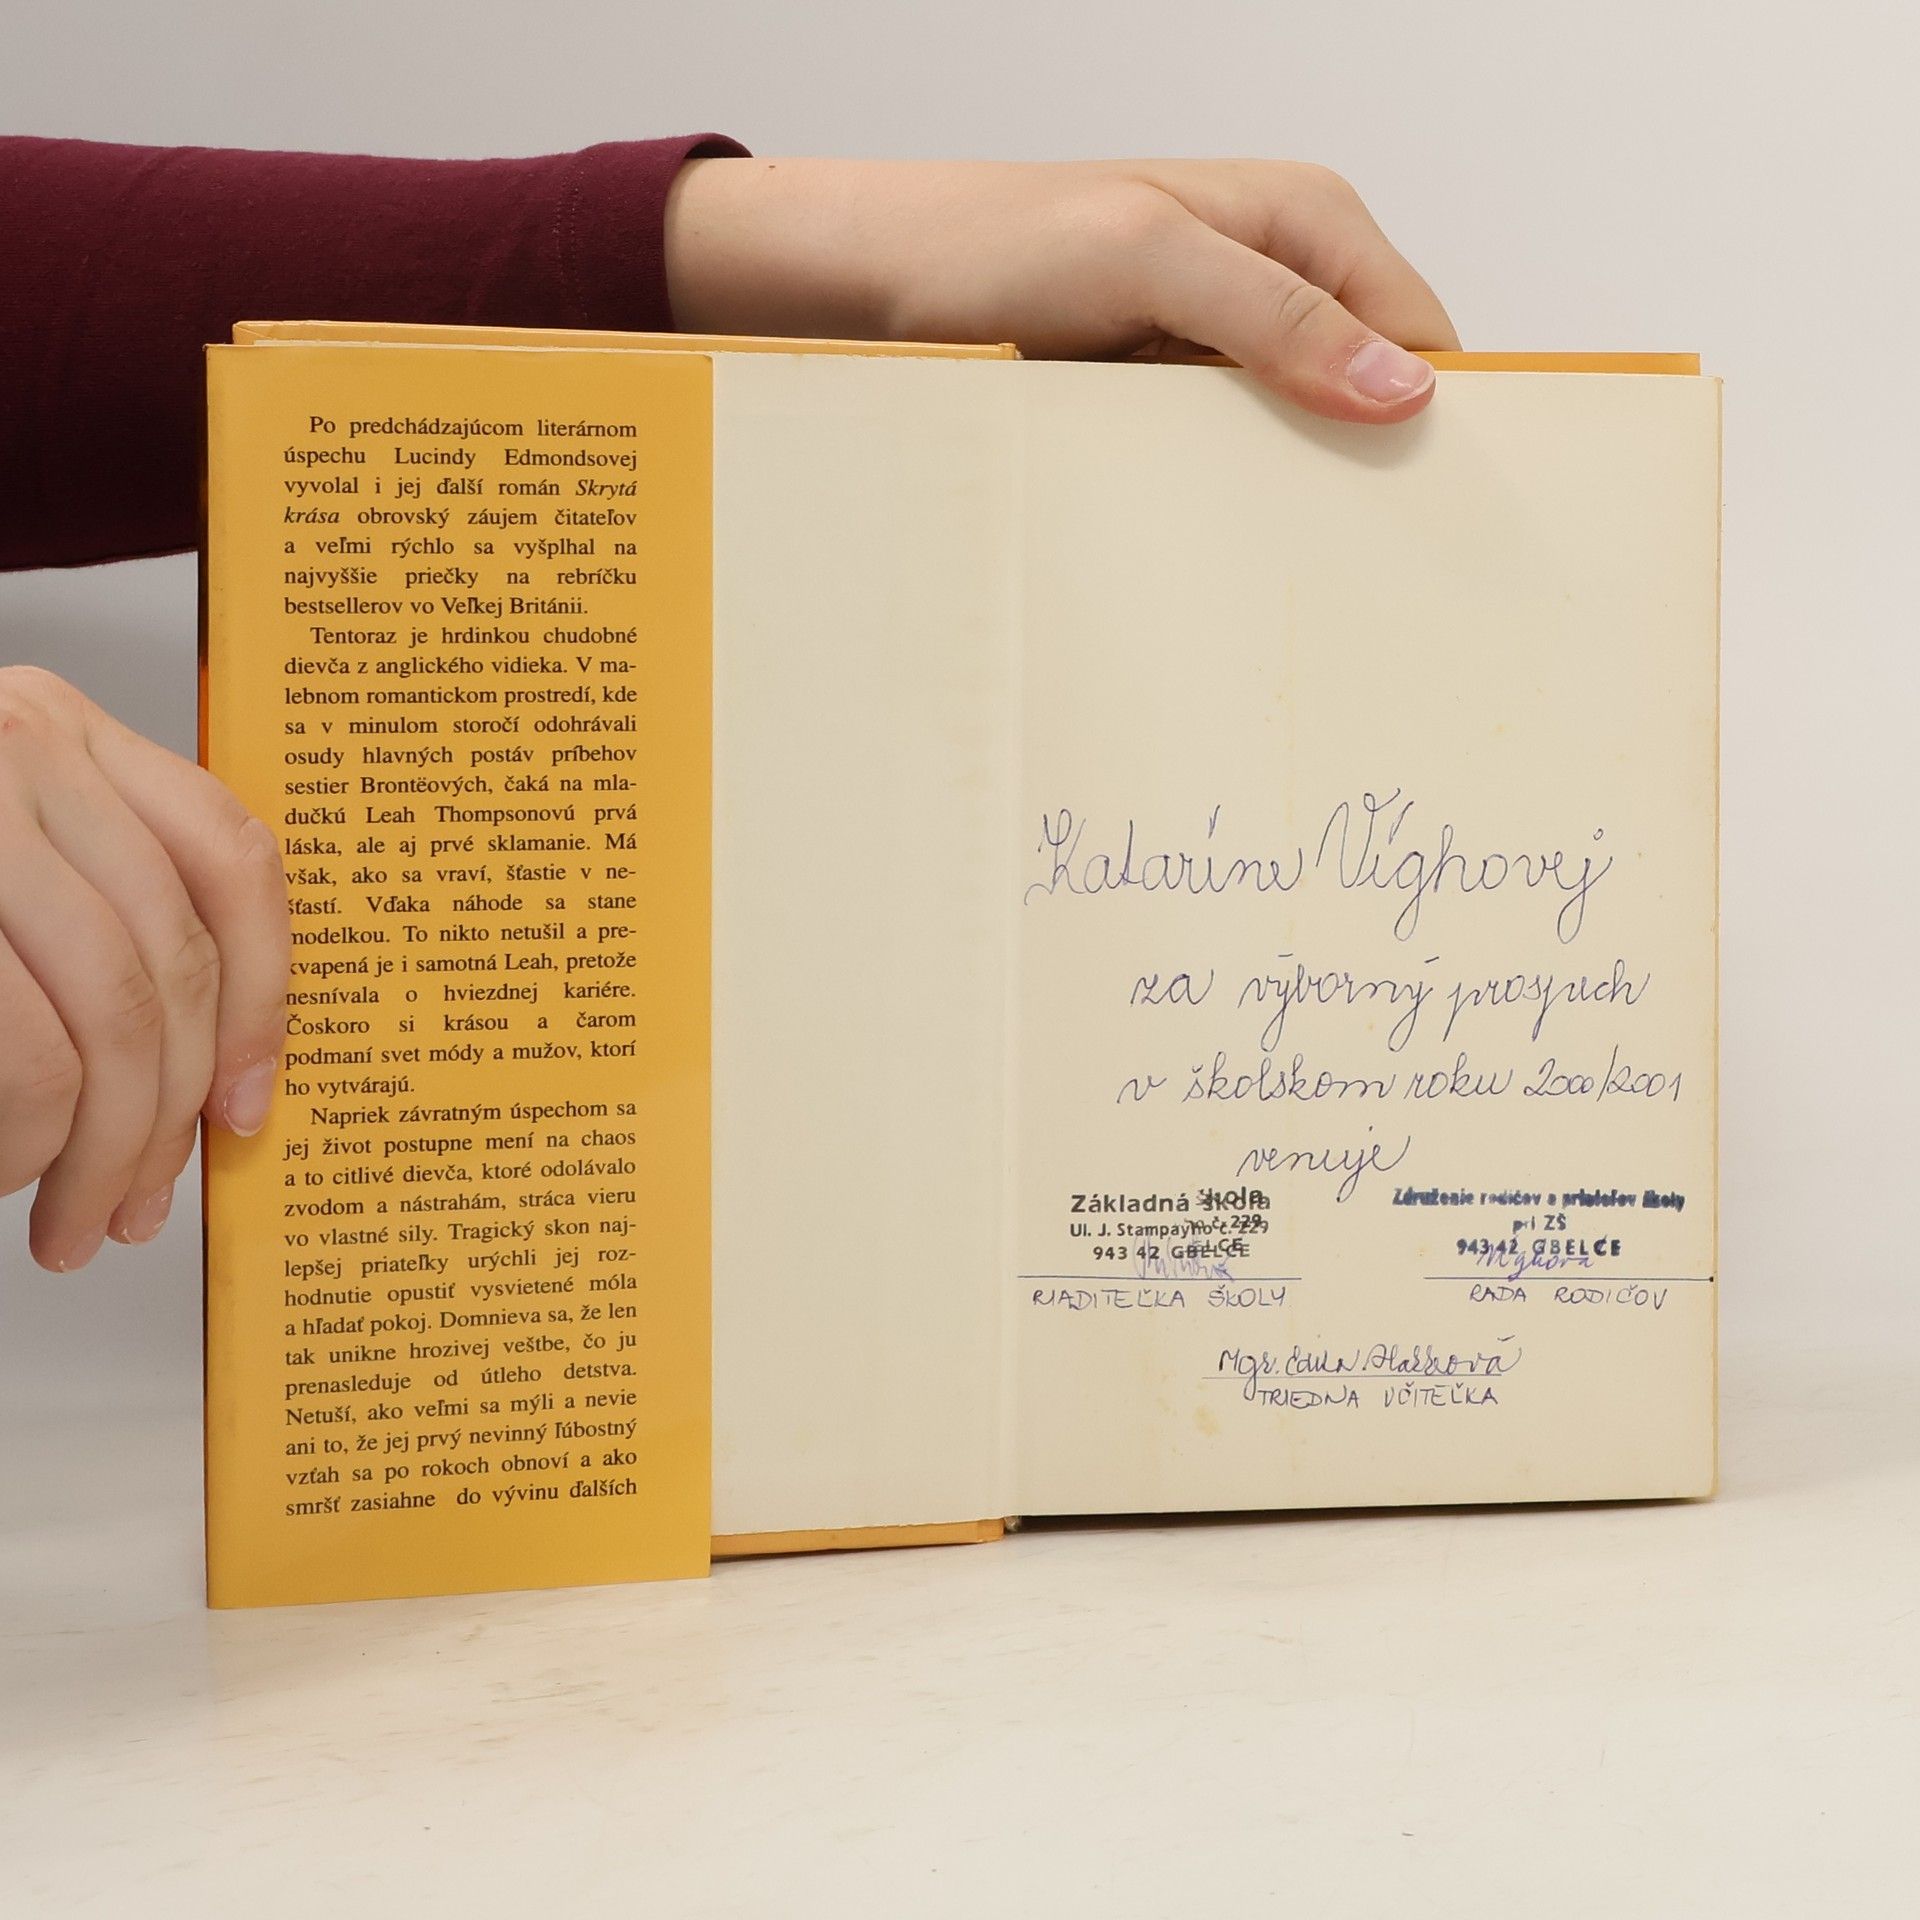 Po predchádzajúcom literárnom
úspechu Lucindy Edmondsovej
vyvolal i jej ďalší román Skrytá
krása obrovský záujem čitateľov
a veľmi rýchlo sa vyšplhal na
najvyššie priečky na rebríčku
bestsellerov vo Veľkej Británii.
Tentoraz je hrdinkou chudobné
dievča z anglického vidieka. V ma-
lebnom romantickom prostredí, kde
sa v minulom storočí odohrávali
osudy hlavných postáv príbehov
sestier Brontëových, čaká na mla-
dučkú Leah Thompsonovú prvá
láska, ale aj prvé sklamanie. Má
však, ako sa vraví, šťastie v ne-
šťastí. Vďaka náhode sa stane
modelkou. To nikto netušil a pre-
kvapená je i samotná Leah, pretože
nesnívala o hviezdnej kariére.
Čoskoro si krásou a čarom
podmaní svet módy a mužov, ktorí
ho vytvárajú.
Napriek závratným úspechom sa
jej život postupne mení na chaos
a to citlivé dievča, ktoré odolávalo
zvodom a nástrahám, stráca vieru
vo vlastné sily. Tragický skon naj-
lepšej priateľky urýchli jej roz-
hodnutie opustiť vysvietené móla
a hľadať pokoj. Domnieva sa, že len
tak unikne hrozivej veštbe, čo ju
prenasleduje od útleho detstva.
Netuší, ako veľmi sa mýli a nevie
ani to, že jej prvý nevinný ľúbostný
vzťah sa po rokoch obnoví a ako
smršť zasiahne do vývinu ďalších
Kataríne Víghovej
za výborný prospech
v školskom roku 2000/2001
venuje
Základná škola
Ul. J. Stampayho č. 229
943 42 GBELCE
RIADITEĽKA ŠKOLY
Združenie rodičov a priateľov školy
pri ZŠ
943 42 GBELCE
RADA RODIČOV
Mgr.
TRIEDNA UČITEĽKA